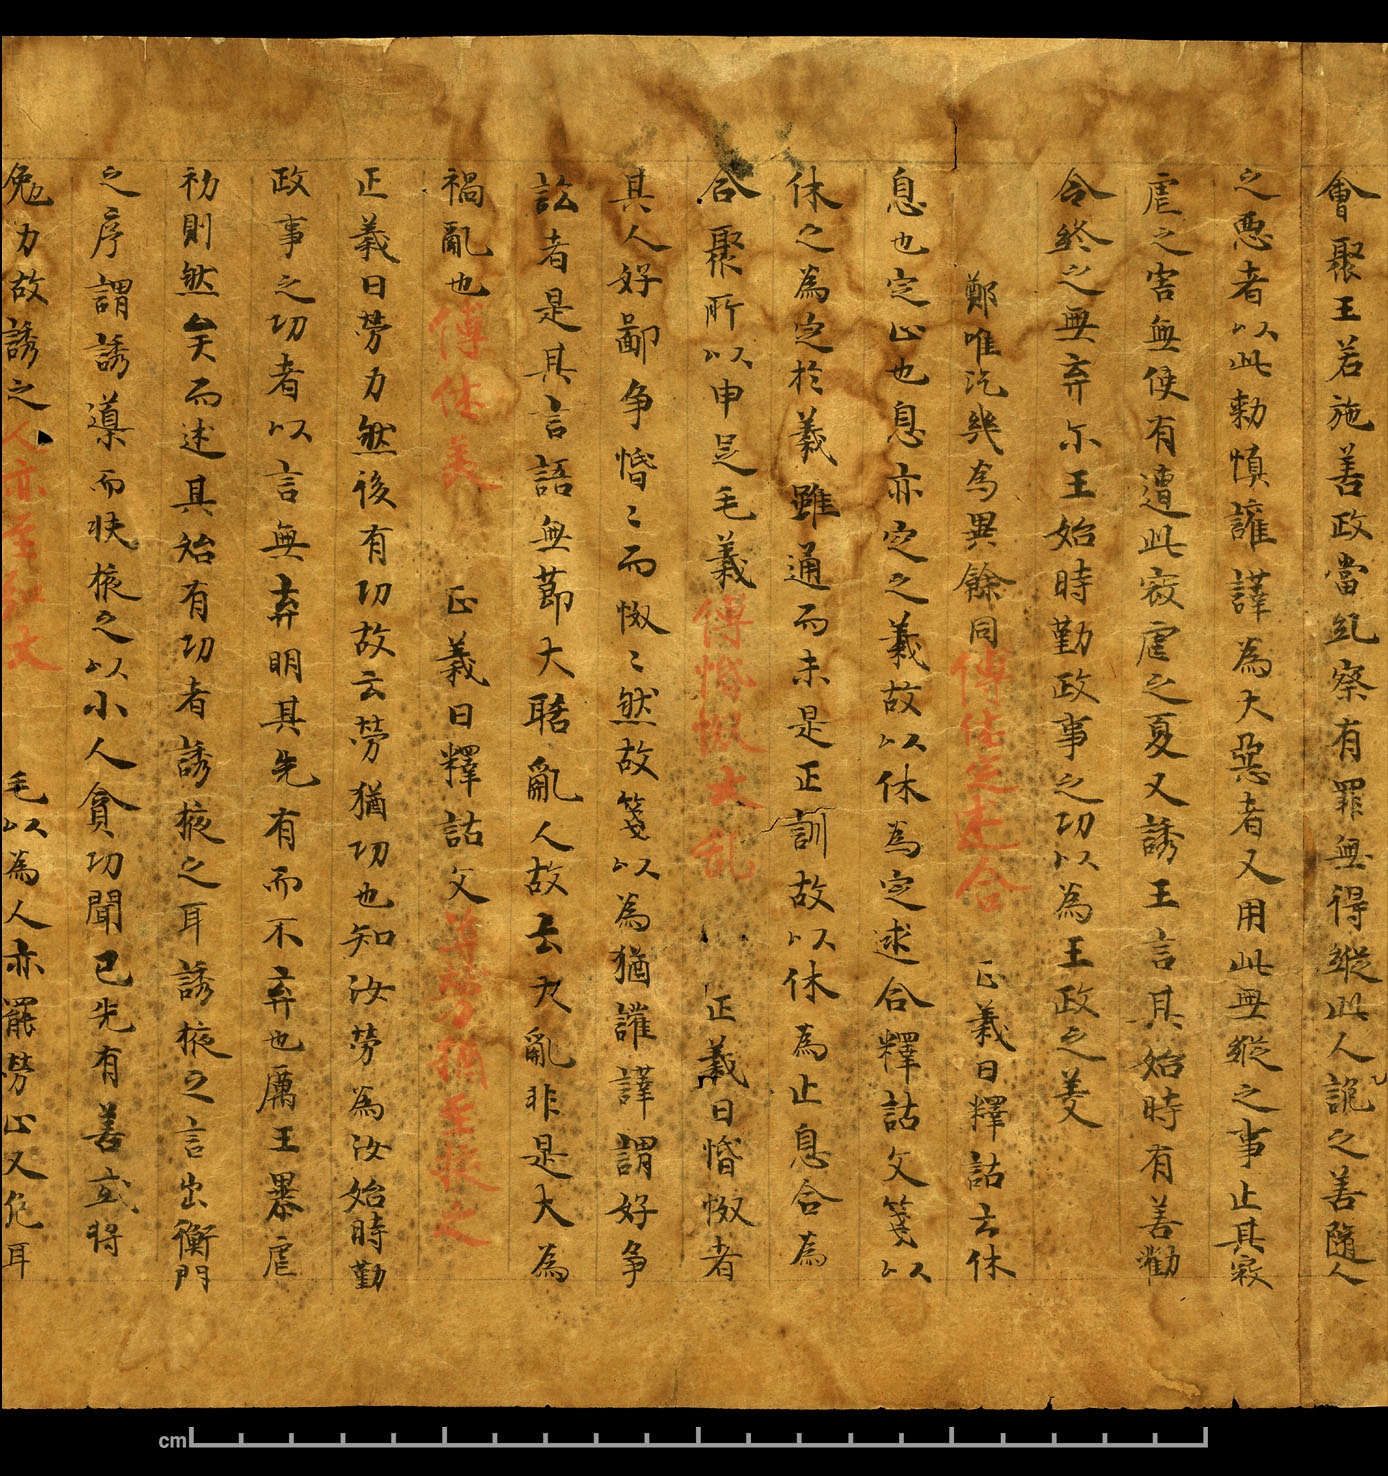 會聚王若施善政當糺察有罪無得縱此人詭之善隨人
之惡者以此勑慎讙譁為大惡者又用此無縱之事止其寇
虐之害無使有遭此寇虐之憂又誘王言其始時有善勸
令終之無弃尓王始時勤政事之功以為王政之美
鄭唯汔幾為異餘同傳休定述合正義曰釋詁云休
息也定止也息亦定之義故以休為定逑合釋詁文箋以
休之為定於義雖通而未是正訓故以休為止息合為
合聚所以申足毛義傳惛怓大乱正義曰惛怓者
其人好鄙争惛〻而怓〻然故箋以為猶讙譁謂好争
訟者是其言語無莭大聒亂人故云大亂非是大為
禍亂也傳休美正義曰釋詁文箋勞猶至掖之
正義曰勞力然後有功故云勞猶功也知汝勞為汝始時勤
政事之功者以言無弃明其先有而不弃也厲王暴虐
初則然矣而述其始有功者誘掖之耳誘掖之言出衡門
之序謂誘導而扶掖之以小人貪功聞已先有善或將
勉力故誘之人亦至糺大毛以為人亦罷勞止又危耳